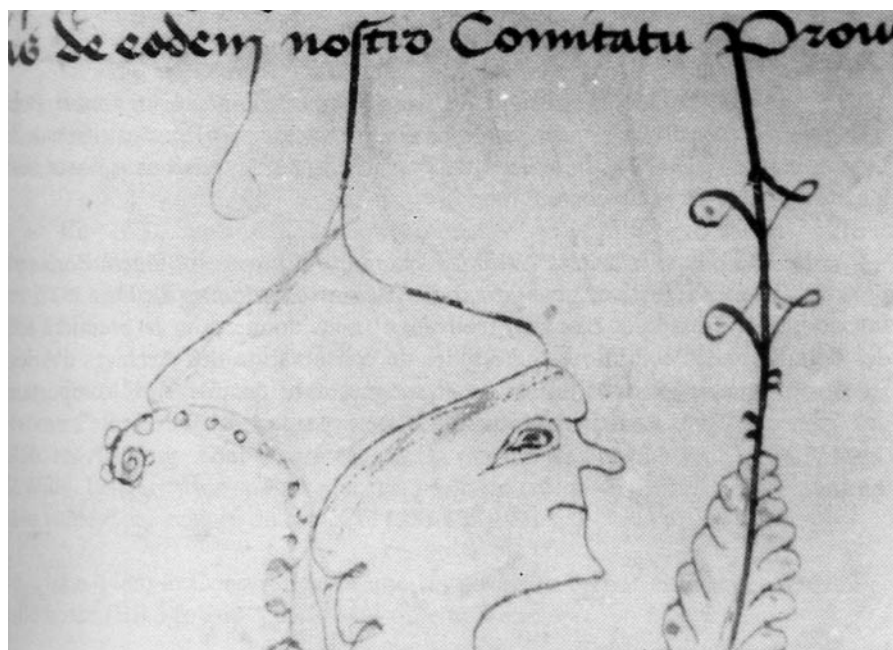 de eodem nostro Comitatu Prou